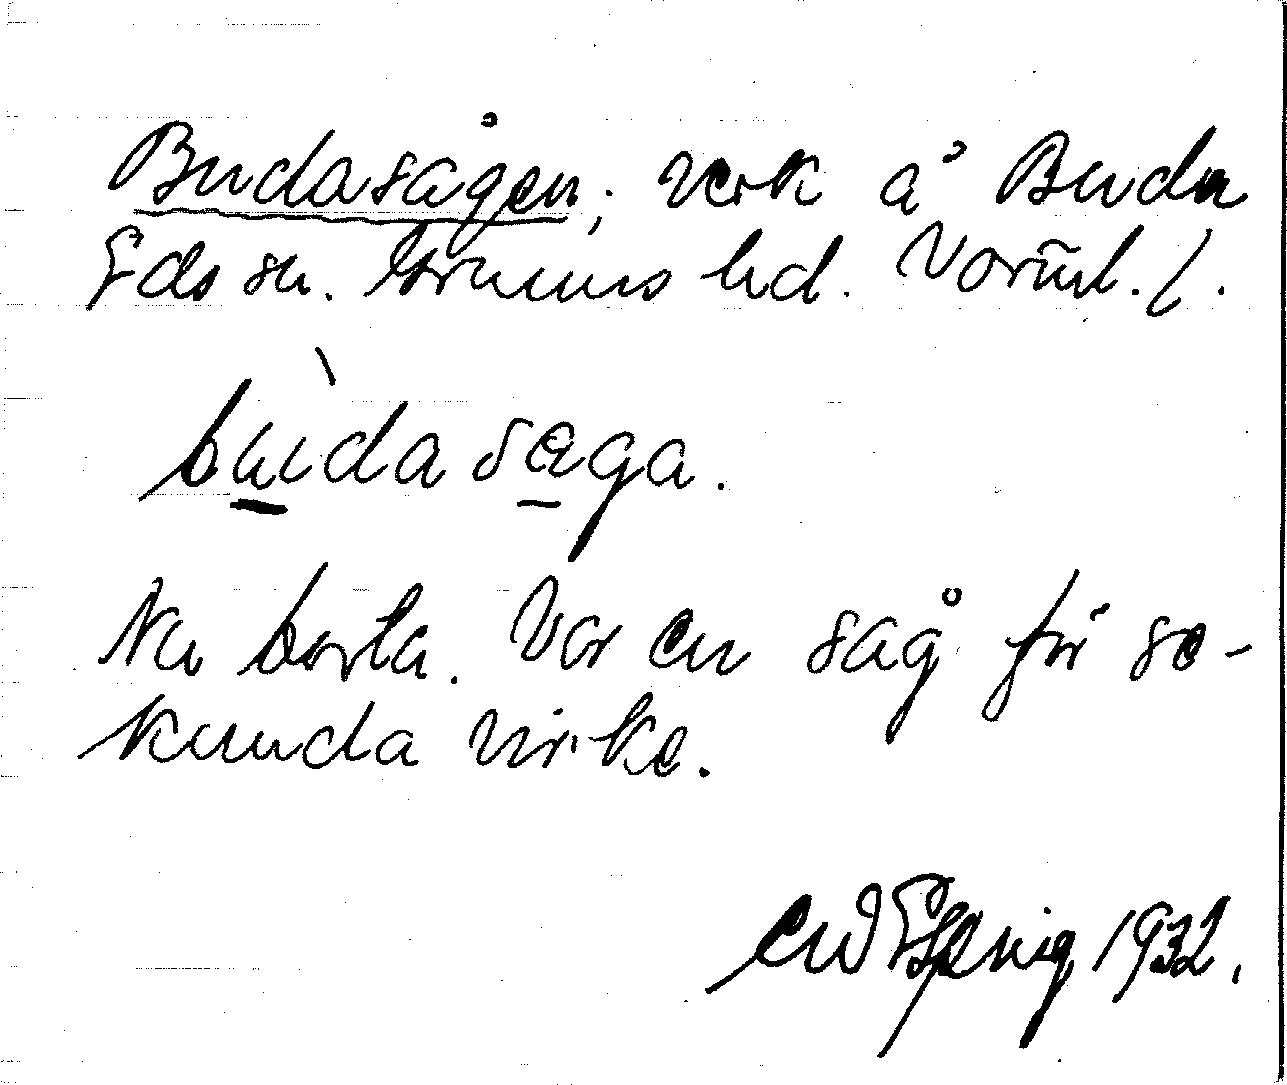 Budasågen; verk å Buda
Eds sn. Grums hd. Värml. l.
Nu borta. Var en såg för se-
kunda virke.
1932.